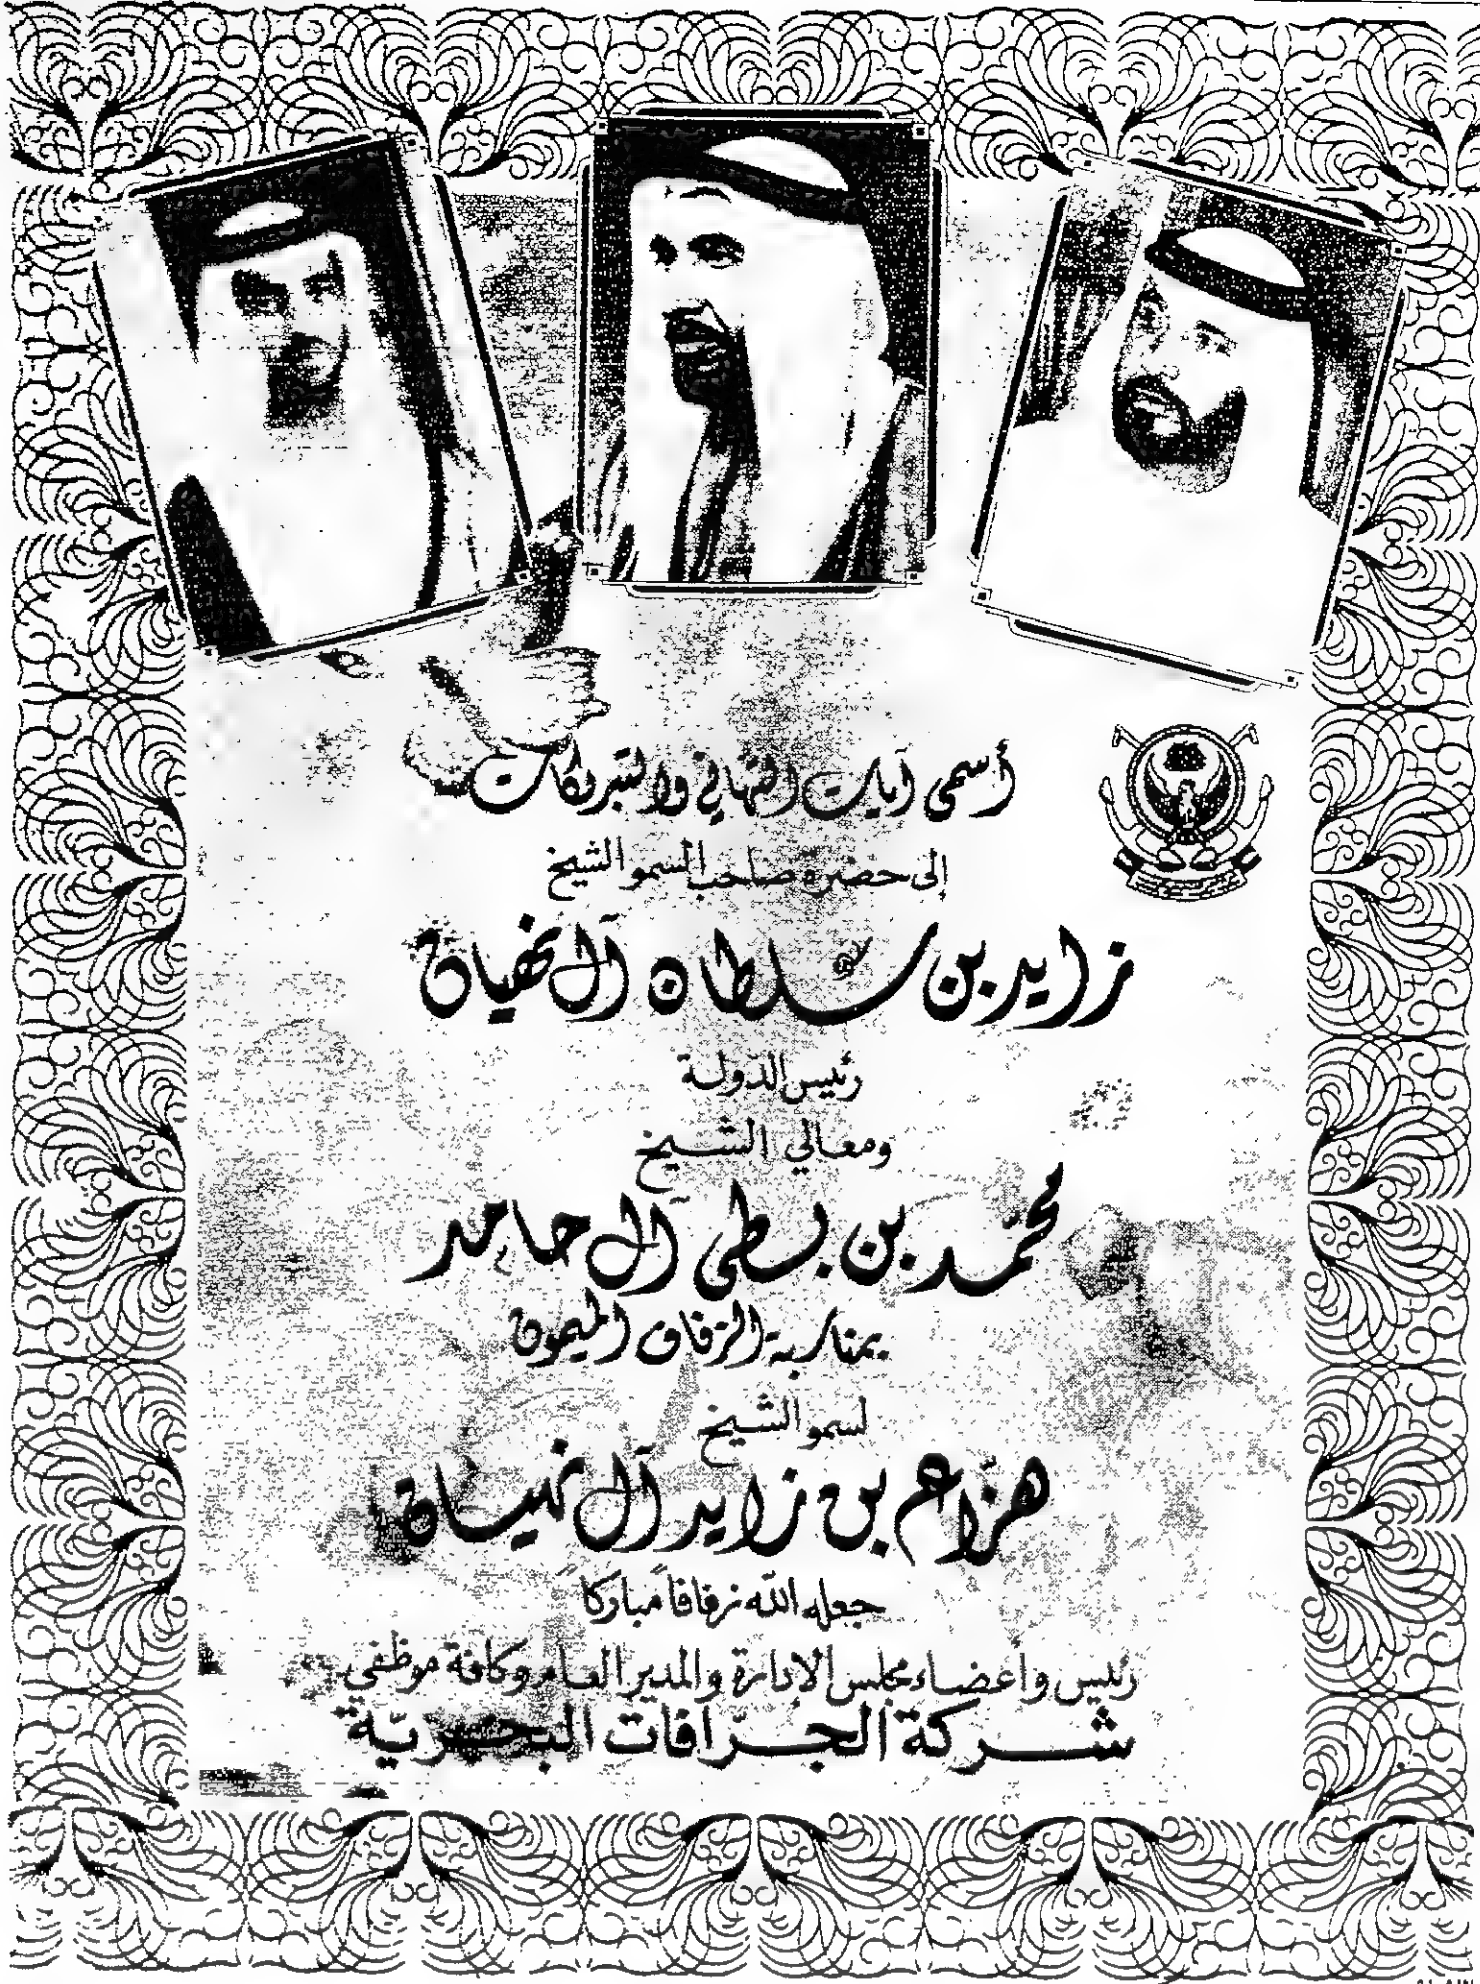 أسمى آيات التهاني والتبريكات
إلى حضرة صاحب السمو الشيخ
زايد بن سلطان آل نهيان
رئيس الدولة
ومعالي الشيخ
محمد بن بطي آل حامد
بمناسبة الزفاف الميمون
لسمو الشيخ
هزاع بن زايد آل نهيان
جعله الله زفافاً مباركاً
رئيس وأعضاء مجلس الإدارة والمدير العام وكافة موظفي
شركة الجرّافات البحريّة